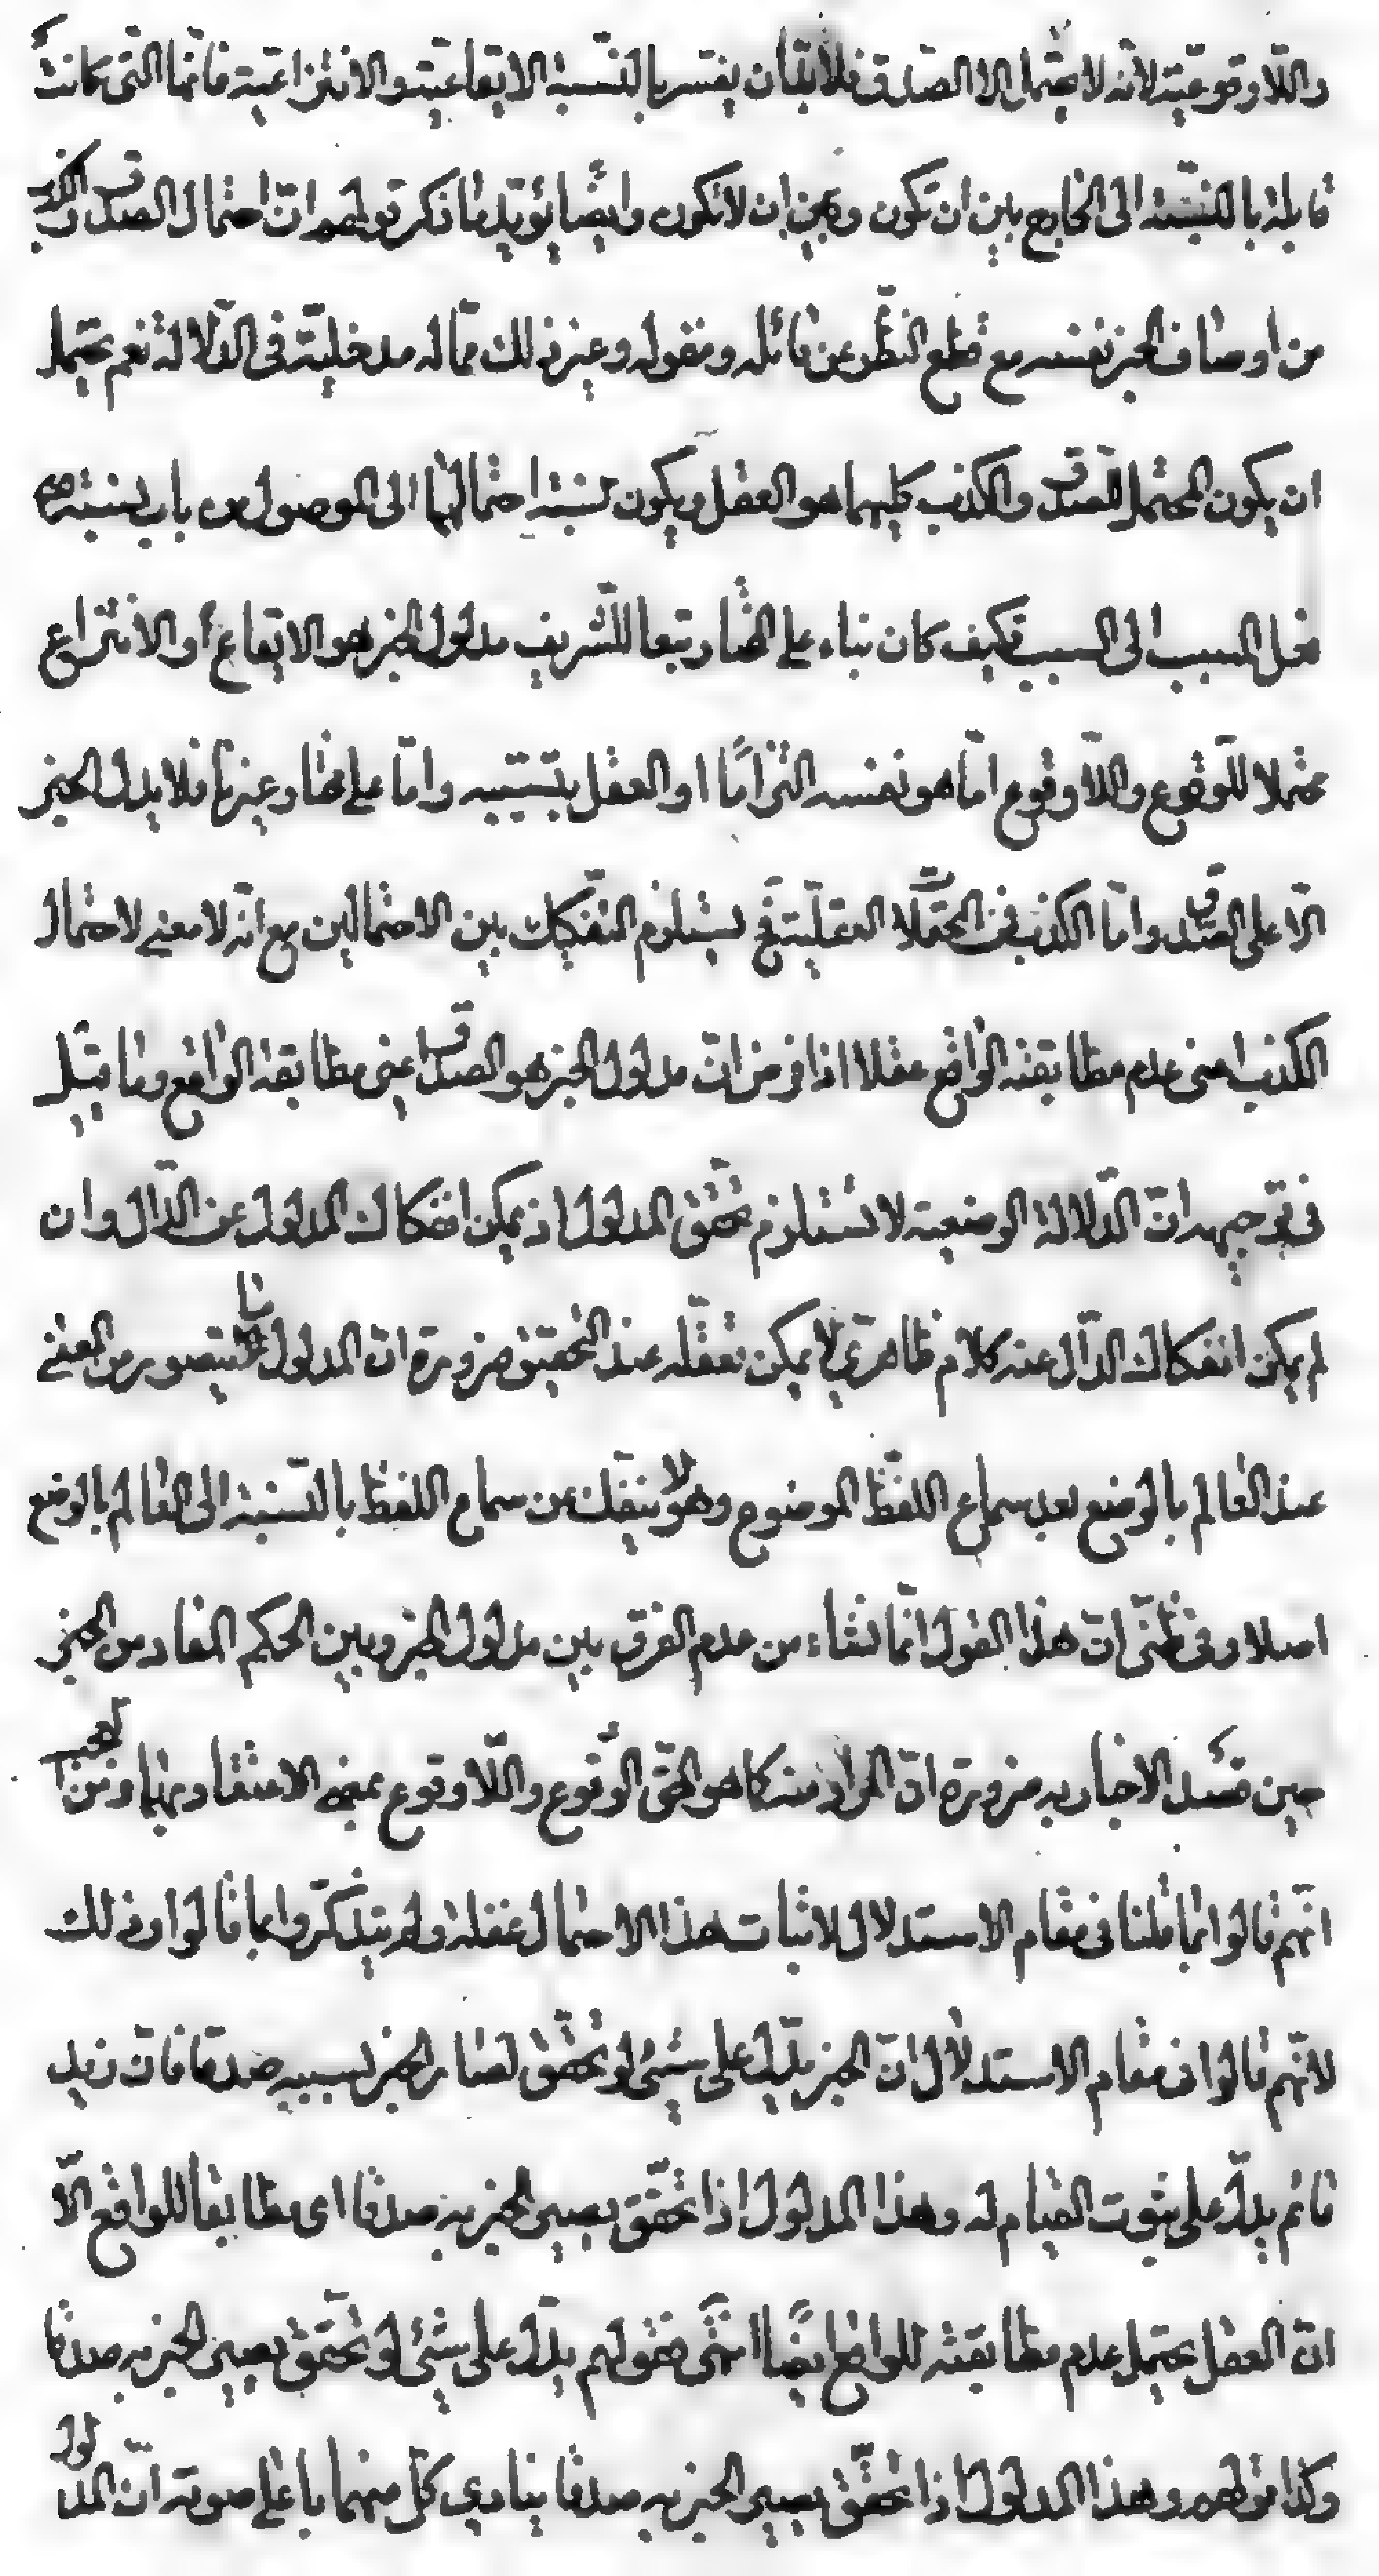 واللّاوقوعيّة لانّه لا يحتمل الا الصّدق فلا بدّ ان يفسر بالنّسبة الايقاعيّة والانتزاعيّة فانّها الّتى كانت
قابلة بالنّسبة الى الخارج بين ان تكون وبين ان لا تكون وايضًا يؤيّد ما ذكر قولهم انّ احتمال الصدق والكذب
من اوصاف الخبر نفسه مع قطع النّظر عن قائله ومقوله وغير ذلك ممّا له مدخليّة فى الدّلالة نعم يحتمل
ان يكون المحتمل للصدق والكذب كليهما هو العقل ويكون نسبة احتمالهما الى الموصول من باب نسبة
فعل المسبب الى السبب فكيف كان بناء على المختار تبعا للشّريف مدلول الخبر هو الايقاع أو الانتزاع
محتملا للوقوع واللّاوقوع امّا هو نفسه التزامًا او العقل بتسبيبه وامّا على مختار غيرنا فلا يدل الخبر
الّا على الصدق وامّا الكذب فمن المحتملات العقليّة فح يستلزم التفكيك بين الاحتمالين مع انّه لا معنى لاحتمال
الكذب اعنى عدم مطابقته الواقع عقلا اذا فرض انّ مدلول الخبر هو الصدق اعنى مطابقة الواقع وما قيل
فى توجيهه انّ الدّلالة الوضعية لا تستلزم تحقّق المدلول اذ يمكن انفكاك المدلول عن الدّال وان
لم يمكن انفكاك الدّال عنه كلام ظاهرى لا يمكن تعقّله عند التحقيق ضرورة ان المدلول ما يتصور من المعنى
عند العالم بالوضع بعد سماع اللفظ الموضوع وهو لا ينفك عن سماع اللفظ بالنّسبة الى العالم بالوضع
اصلا وفى ظنّى انّ هذا القول انّما نشاء من عدم الفرق بين مدلول الخبر وبين الحكم المفاد من الخبر
حين قصد الاخبار به ضرورة انّ المراد منه كما هو الحقّ الوقوع واللّاوقوع بمعنى الاعتقاد بهما ومن العجب
انّهم قالوا بما قلنا فى مقام الاستدلال لاثبات هذا الاحتمال غفلة ولم يتذكّروا بما قالوا وذلك
لانّهم قالوا فى مقام الاستدلال انّ الخبر يدّل على شيئ لو تحقّق لصار الخبر بسببه صدقا فانّ زيد
قائم يدلّ على ثبوت القيام له وهذا المدلول اذا تحقّق يصير الخبر به صدقا اى مطابقا للواقع الّا
انّ العقل يحتمل عدم مطابقته للواقع ايضًا انتهى فقولهم يدّل على شيئ لو تحقّق يصير الخبر به صدقا
وكذا قولهم وهذا المدلول اذا تحقّق يصير الخبر به صدقا ينادى كلّ منهما باعلى صوته انّ المدلول